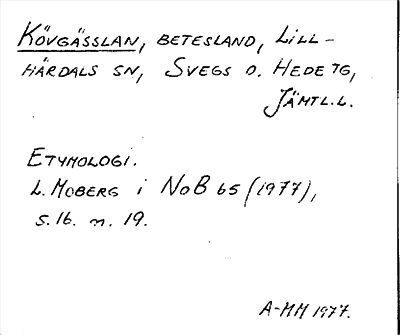 KÖVGÄSSLAN, BETESLAND, LILL-
HÄRDALS SN, SVEGS O. HEDE TG,
JÄMTL.L.
ETYMOLOGI.
L. MOBERG i NoB 65 (1977),
s. 16. m. 19.
A-MM 1977.